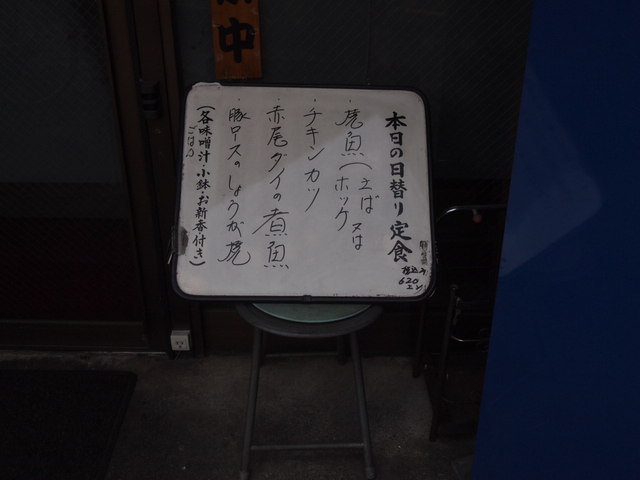 中
本日の日替り定食
税込み
620
エン
・焼魚(さば又は
ホッケ
・チキンカツ
・赤尾ダイの煮魚
・豚ロースのしょうが焼
(各味噌汁・小鉢・お新香付き)
ごはん